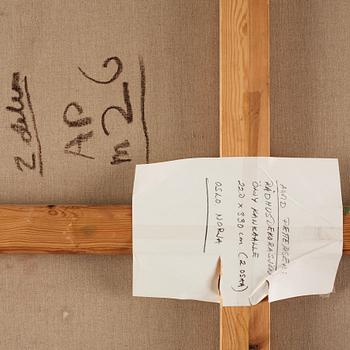 2 delen
AP G
m 26
ARVID PETTERSEN
RÅDHUSDEKORASJON
ÖLJY KANKAALLE
220 x 330 cm (2 OSAA)
OSLO NORJA